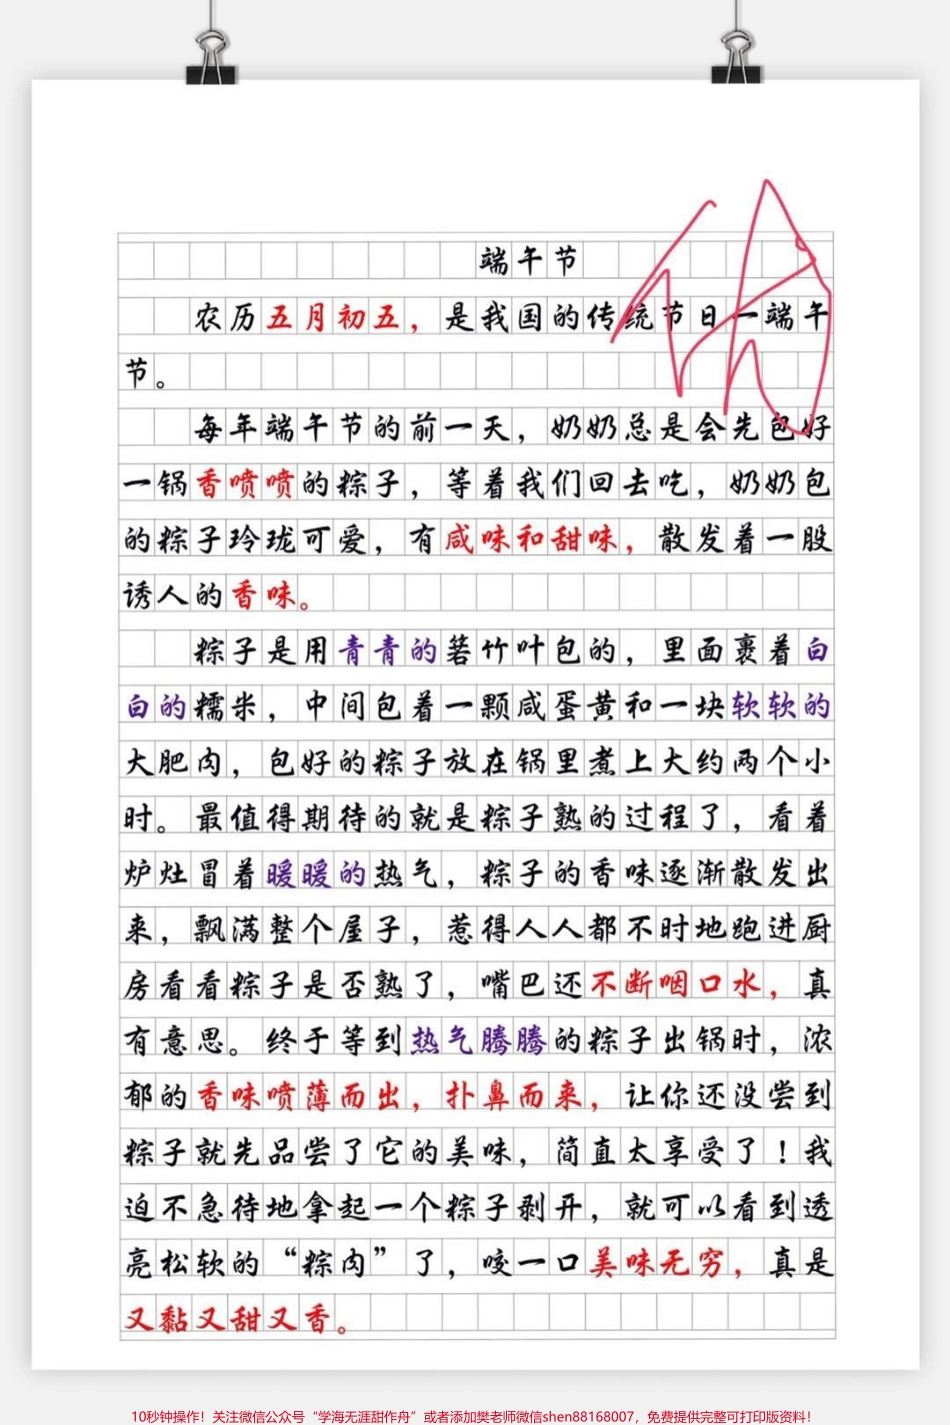 端午节
农历五月初五，是我国的传统节日一端午
节。
每年端午节的前一天，奶奶总是会先包好
一锅香喷喷的粽子，等着我们回去吃，奶奶包
的粽子玲珑可爱，有咸味和甜味，散发着一股
诱人的香味。
粽子是用青青的箬竹叶包的，里面裹着白
白的糯米，中间包着一颗咸蛋黄和一块软软的
大肥肉，包好的粽子放在锅里煮上大约两个小
时。最值得期待的就是粽子熟的过程了，看着
炉灶冒着暖暖的热气，粽子的香味逐渐散发出
来，飘满整个屋子，惹得人人都不时地跑进厨
房看看粽子是否熟了，嘴巴还不断咽口水，真
有意思。终于等到热气腾腾的粽子出锅时，浓
郁的香味喷薄而出，扑鼻而来，让你还没尝到
粽子就先品尝了它的美味，简直太享受了！我
迫不急待地拿起一个粽子剥开，就可以看到透
亮松软的“粽肉”了，咬一口美味无穷，真是
又黏又甜又香。
10秒钟操作！关注微信公众号“学海无涯甜作舟”或者添加樊老师微信shen88168007，免费提供完整可打印版资料！